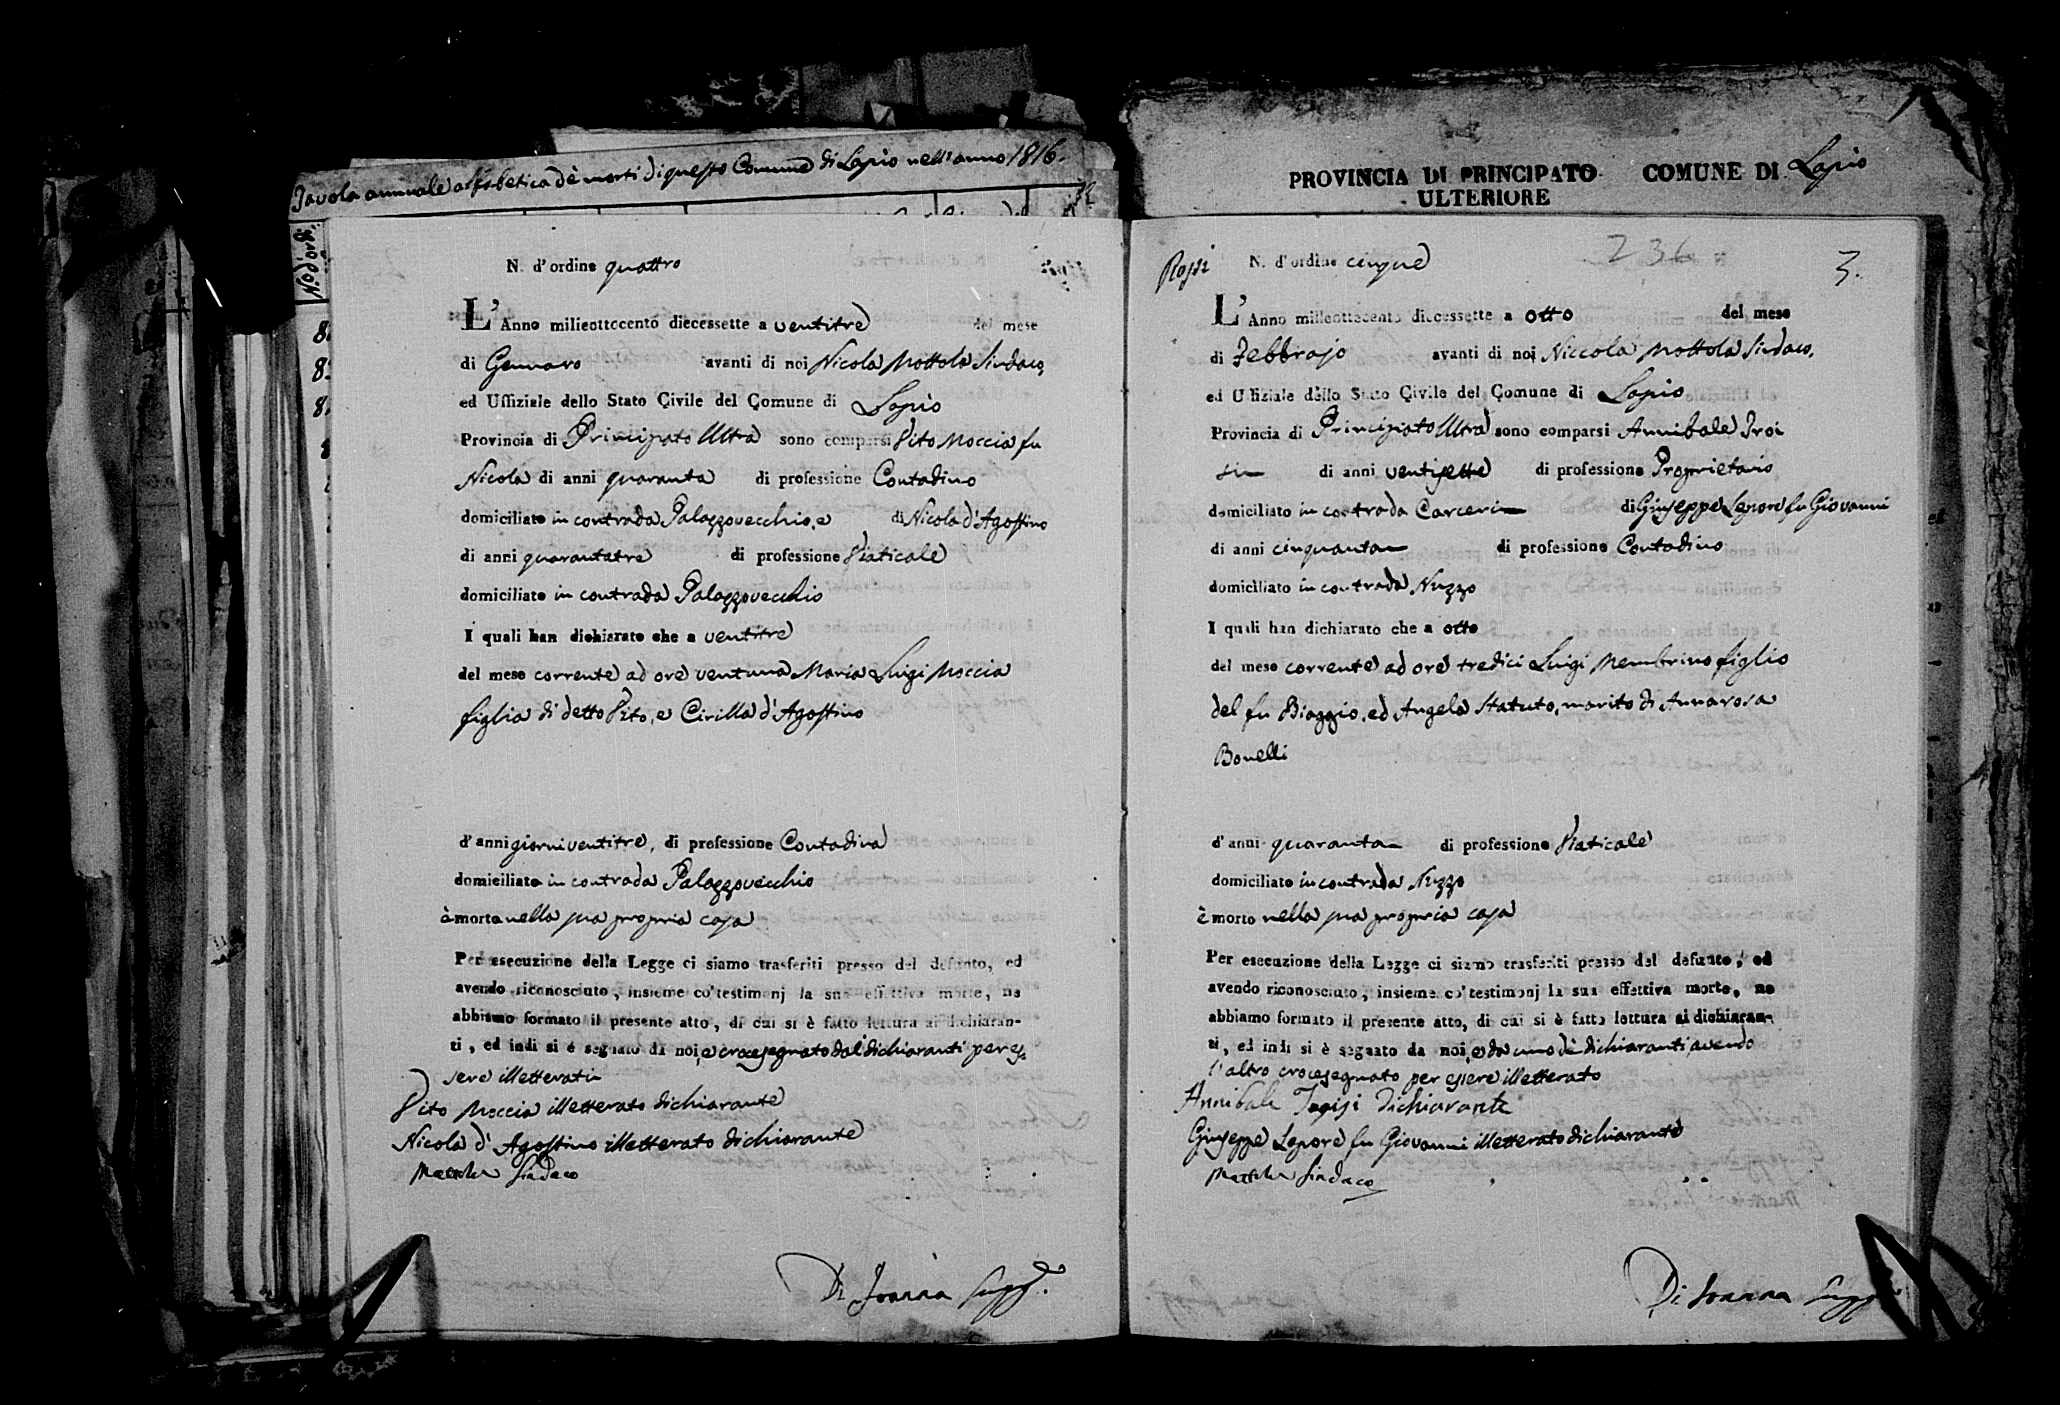 Tavola annuale alfabetica de' morti di questo Comune di Lapio nell'anno 1816.
N. d'ordine quattro
L'Anno milleottocento diecessette a ventitre del mese
di Gennaro avanti di noi Nicola Mottola Sindaco,
ed Uffiziale dello Stato Civile del Comune di Lapio
Provincia di Principato Ultra sono comparsi Vito Moccia fu
Nicola di anni quaranta di professione Contadino
domiciliato in contrada Palazzovecchio, e di Nicola d'Agostino
di anni quarantatre di professione Viaticale
domiciliato in contrada Palazzovecchio
I quali han dichiarato che a ventitre
del mese corrente ad ore ventuna Maria Luigi Moccia
figlia di detto Vito, e Cirilla d'Agostino
d'anni giorni ventitre, di professione Contadina
domiciliato in contrada Palazzovecchio
è morto nella sua propria casa
Per esecuzione della Legge ci siamo trasferiti presso del defunto, ed
avendo riconosciuto, insieme co' testimonj la sua effettiva morte, ne
abbiamo formato il presente atto, di cui si è fatto lettura ai dichiaran-
ti, ed indi si è segnato da noi, e crocesegnato dai dichiaranti per es
sere illetterati
Vito Moccia illetterato dichiarante
Nicola d'Agostino illetterato dichiarante
Mottola Sindaco
PROVINCIA DI PRINCIPATO COMUNE DI Lapio
ULTERIORE
Rossi N. d'ordine cinque 236 3.
L'Anno milleottocento diecessette a otto del mese
di Febbrajo avanti di noi Niccola Mottola Sindaco,
ed Uffiziale dello Stato Civile del Comune di Lapio
Provincia di Principato Ultra sono comparsi Annibale Troi
si di anni ventisette di professione Proprietario
domiciliato in contrada Carceri di Giuseppe Lepore fu Giovanni
di anni cinquanta di professione Contadino
domiciliato in contrada Nuzzo
I quali han dichiarato che a otto
del mese corrente ad ore tredici Luigi Membrino figlio
del fu Biaggio, ed Angela Statuto, marito di Annarosa
Bonelli
d'anni quaranta di professione Viaticale
domiciliato in contrada Nuzzo
è morto nella sua propria casa
Per esecuzione della Legge ci siamo trasferiti presso del defunto, ed
avendo riconosciuto, insieme co' testimonj la sua effettiva morte, ne
abbiamo formato il presente atto, di cui si è fatto lettura ai dichiaran-
ti, ed indi si è segnato da noi, e da uno de' dichiaranti, avendo
l'altro crocesegnato per essere illetterato
Annibale Dichiarante
Giuseppe Lepore fu Giovanni illetterato dichiarante
Mottola Sindaco